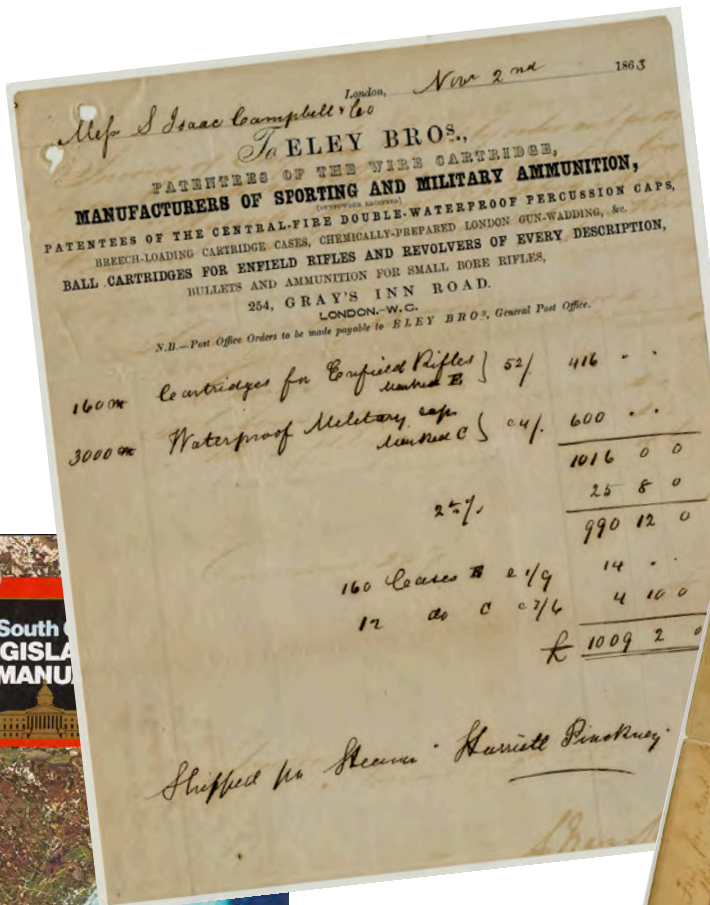 London, Nov 2nd 1863
Mess S Isaac Campbell & Co
To ELEY BROS.,
PATENTEES OF THE WIRE CARTRIDGE,
MANUFACTURERS OF SPORTING AND MILITARY AMMUNITION,
(GUNPOWDER EXCEPTED)
PATENTEES OF THE CENTRAL-FIRE DOUBLE-WATERPROOF PERCUSSION CAPS,
BREECH-LOADING CARTRIDGE CASES, CHEMICALLY-PREPARED LONDON GUN-WADDING, &c.
BALL CARTRIDGES FOR ENFIELD RIFLES AND REVOLVERS OF EVERY DESCRIPTION,
BULLETS AND AMMUNITION FOR SMALL BORE RIFLES,
254, GRAY'S INN ROAD.
LONDON.-W.C.
N.B.—Post Office Orders to be made payable to ELEY BROS, General Post Office.
160 m Cartridges for Enfield Rifles } 52/ 416 . .
Marked B
3000 m Waterproof Military caps } @ 4/. 600 . .
Marked C
1016 0 0
2½ %. 25 8 0
990 12 0
160 Cases B @ 1/9 14 . .
12 do C @ 7/6 4 10 0
£ 1009 2 0
Shipped per Steamer Harriett Pinckney
South
GISLA
MANU